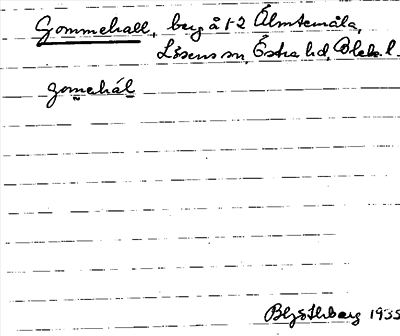 Gommehall, berg å 1-2 Älmtemåla,
Lösens sn, Östra hd, Blek. l.
gomehál
1935